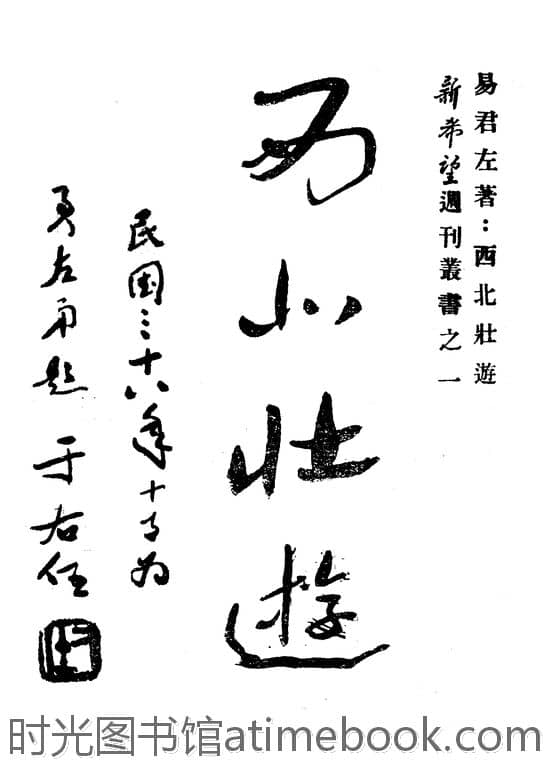 易君左著：西北壯遊
新希望週刊叢書之一
西北壯遊
民国三十八年十月为
君左兄題 于右任
时光图书馆atimebook.com